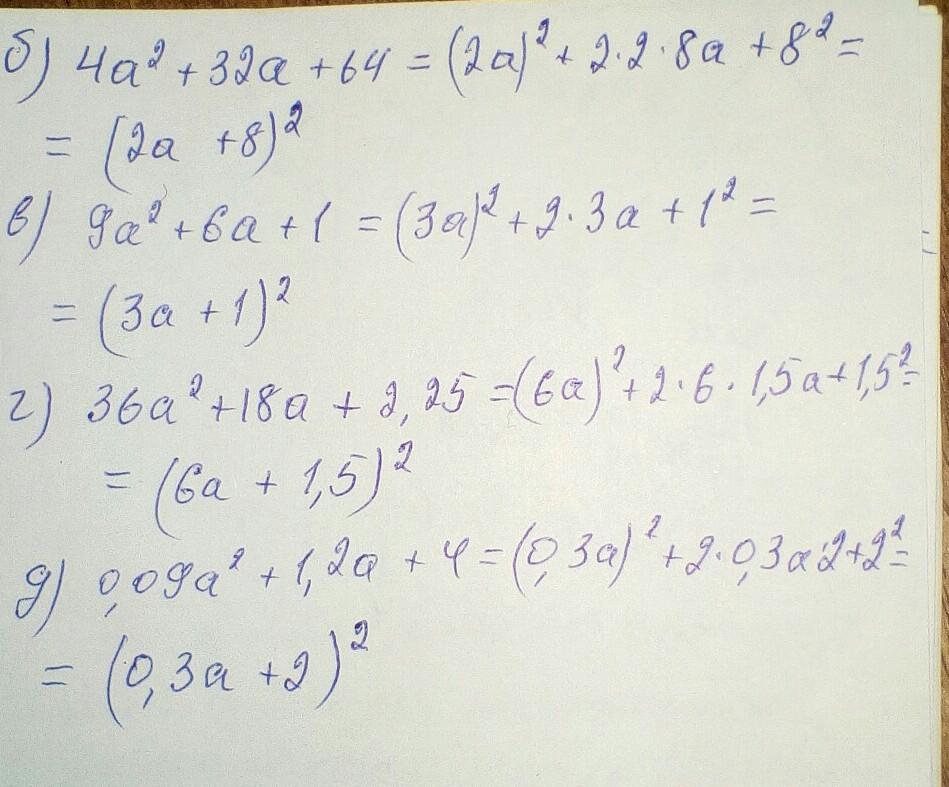 б) 4a² + 32a + 64 = (2a)² + 2·2·8a + 8² =
= (2a + 8)²
в) 9a² + 6a + 1 = (3a)² + 2·3a + 1² =
= (3a + 1)²
г) 36a² + 18a + 2,25 = (6a)² + 2·6·1,5a + 1,5² =
= (6a + 1,5)²
д) 0,09a² + 1,2a + 4 = (0,3a)² + 2·0,3a·2 + 2² =
= (0,3a + 2)²